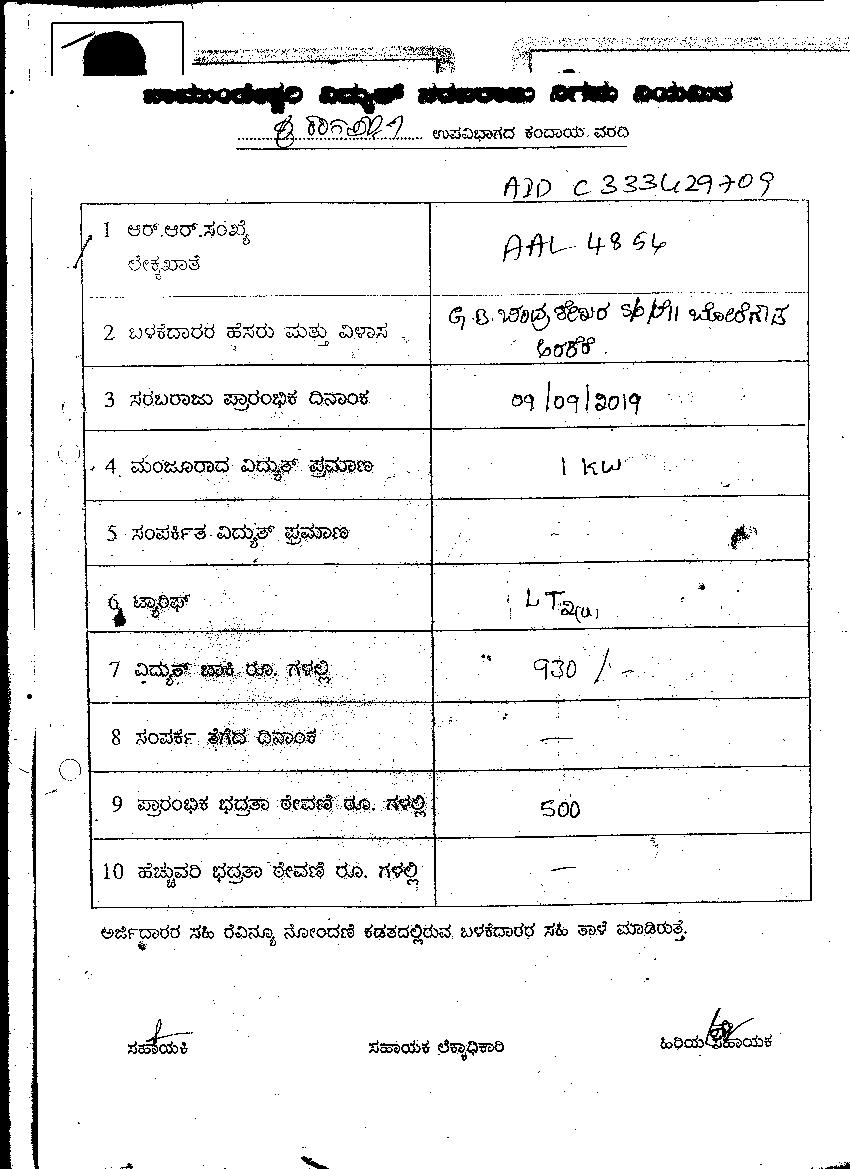 ಚಾಮುಂಡೇಶ್ವರಿ ವಿದ್ಯುತ್ ಸರಬರಾಜು ನಿಗಮ ನಿಯಮಿತ
ಉಪವಿಭಾಗದ ಕಂದಾಯ ವರದಿ
AJD C333429709
1 ಆರ್.ಆರ್.ಸಂಖ್ಯೆ AAL 4854
ಲೆಕ್ಕಖಾತೆ
2 ಬಳಕೆದಾರರ ಹೆಸರು ಮತ್ತು ವಿಳಾಸ G.B. ಚಂದ್ರಶೇಖರ S/o ಬೋರೇಗೌಡ
3 ಸರಬರಾಜು ಪ್ರಾರಂಭಿಕ ದಿನಾಂಕ 09/09/2019
4 ಮಂಜೂರಾದ ವಿದ್ಯುತ್ ಪ್ರಮಾಣ 1 KW
5 ಸಂಪರ್ಕಿತ ವಿದ್ಯುತ್ ಪ್ರಮಾಣ -
6 ಟ್ಯಾರಿಫ್ LT
7 ವಿದ್ಯುತ್ ಬಾಕಿ ರೂ. ಗಳಲ್ಲಿ 930/-
8 ಸಂಪರ್ಕ ತೆಗೆದ ದಿನಾಂಕ —
9 ಪ್ರಾರಂಭಿಕ ಭದ್ರತಾ ಠೇವಣಿ ರೂ. ಗಳಲ್ಲಿ 500
10 ಹೆಚ್ಚುವರಿ ಭದ್ರತಾ ಠೇವಣಿ ರೂ. ಗಳಲ್ಲಿ —
ಅರ್ಜಿದಾರರ ಸಹಿ ರೆವಿನ್ಯೂ ನೋಂದಣಿ ಕಡತದಲ್ಲಿರುವ ಬಳಕೆದಾರರ ಸಹಿ ತಾಳೆ ಮಾಡಿರುತ್ತೆ.
ಸಹಾಯಕಿ ಸಹಾಯಕ ಲೆಕ್ಕಾಧಿಕಾರಿ ಹಿರಿಯ ಸಹಾಯಕ